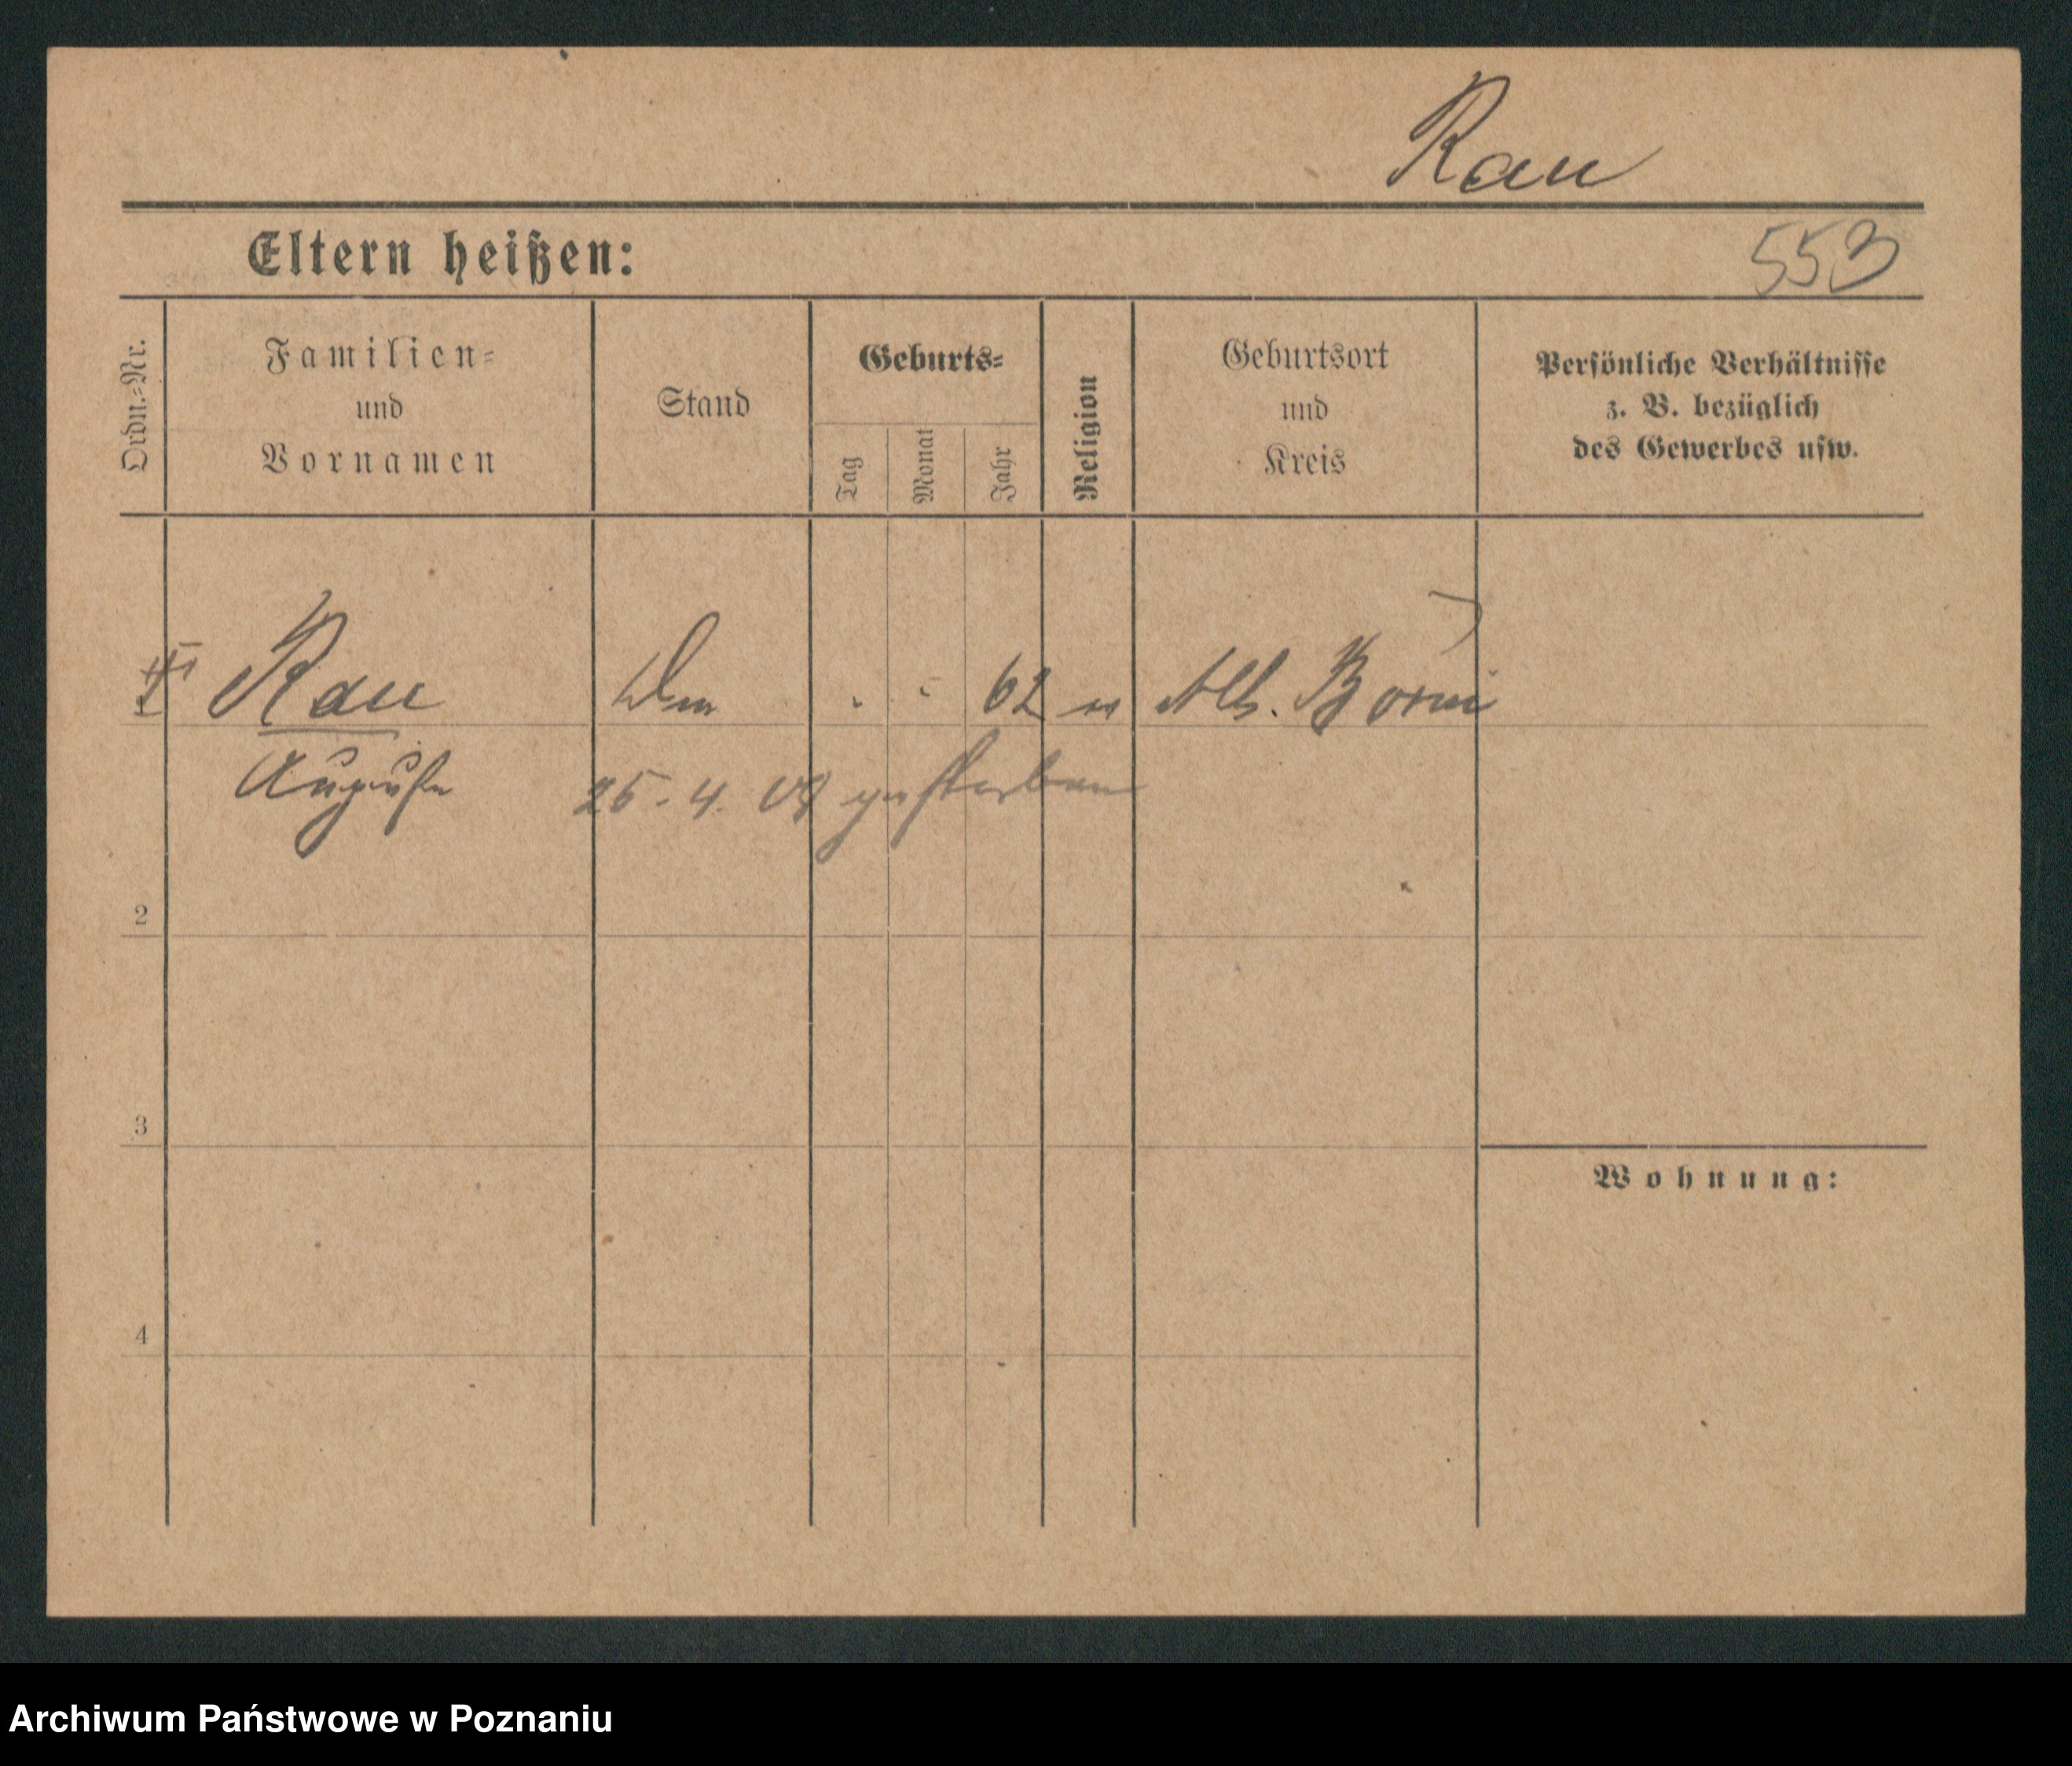 Rau
Eltern heißen:
553
Ordn.-Nr.
Familien-
und
Vornamen
Stand
Geburts-
Tag
Monat
Jahr
Religion
Geburtsort
und
Kreis
Persönliche Verhältnisse
z. B. bezüglich
des Gewerbes usw.
Rau 62 Alt. Borui
Auguste 25.4.09 gestorben
2
3
Wohnung:
4
Archiwum Państwowe w Poznaniu